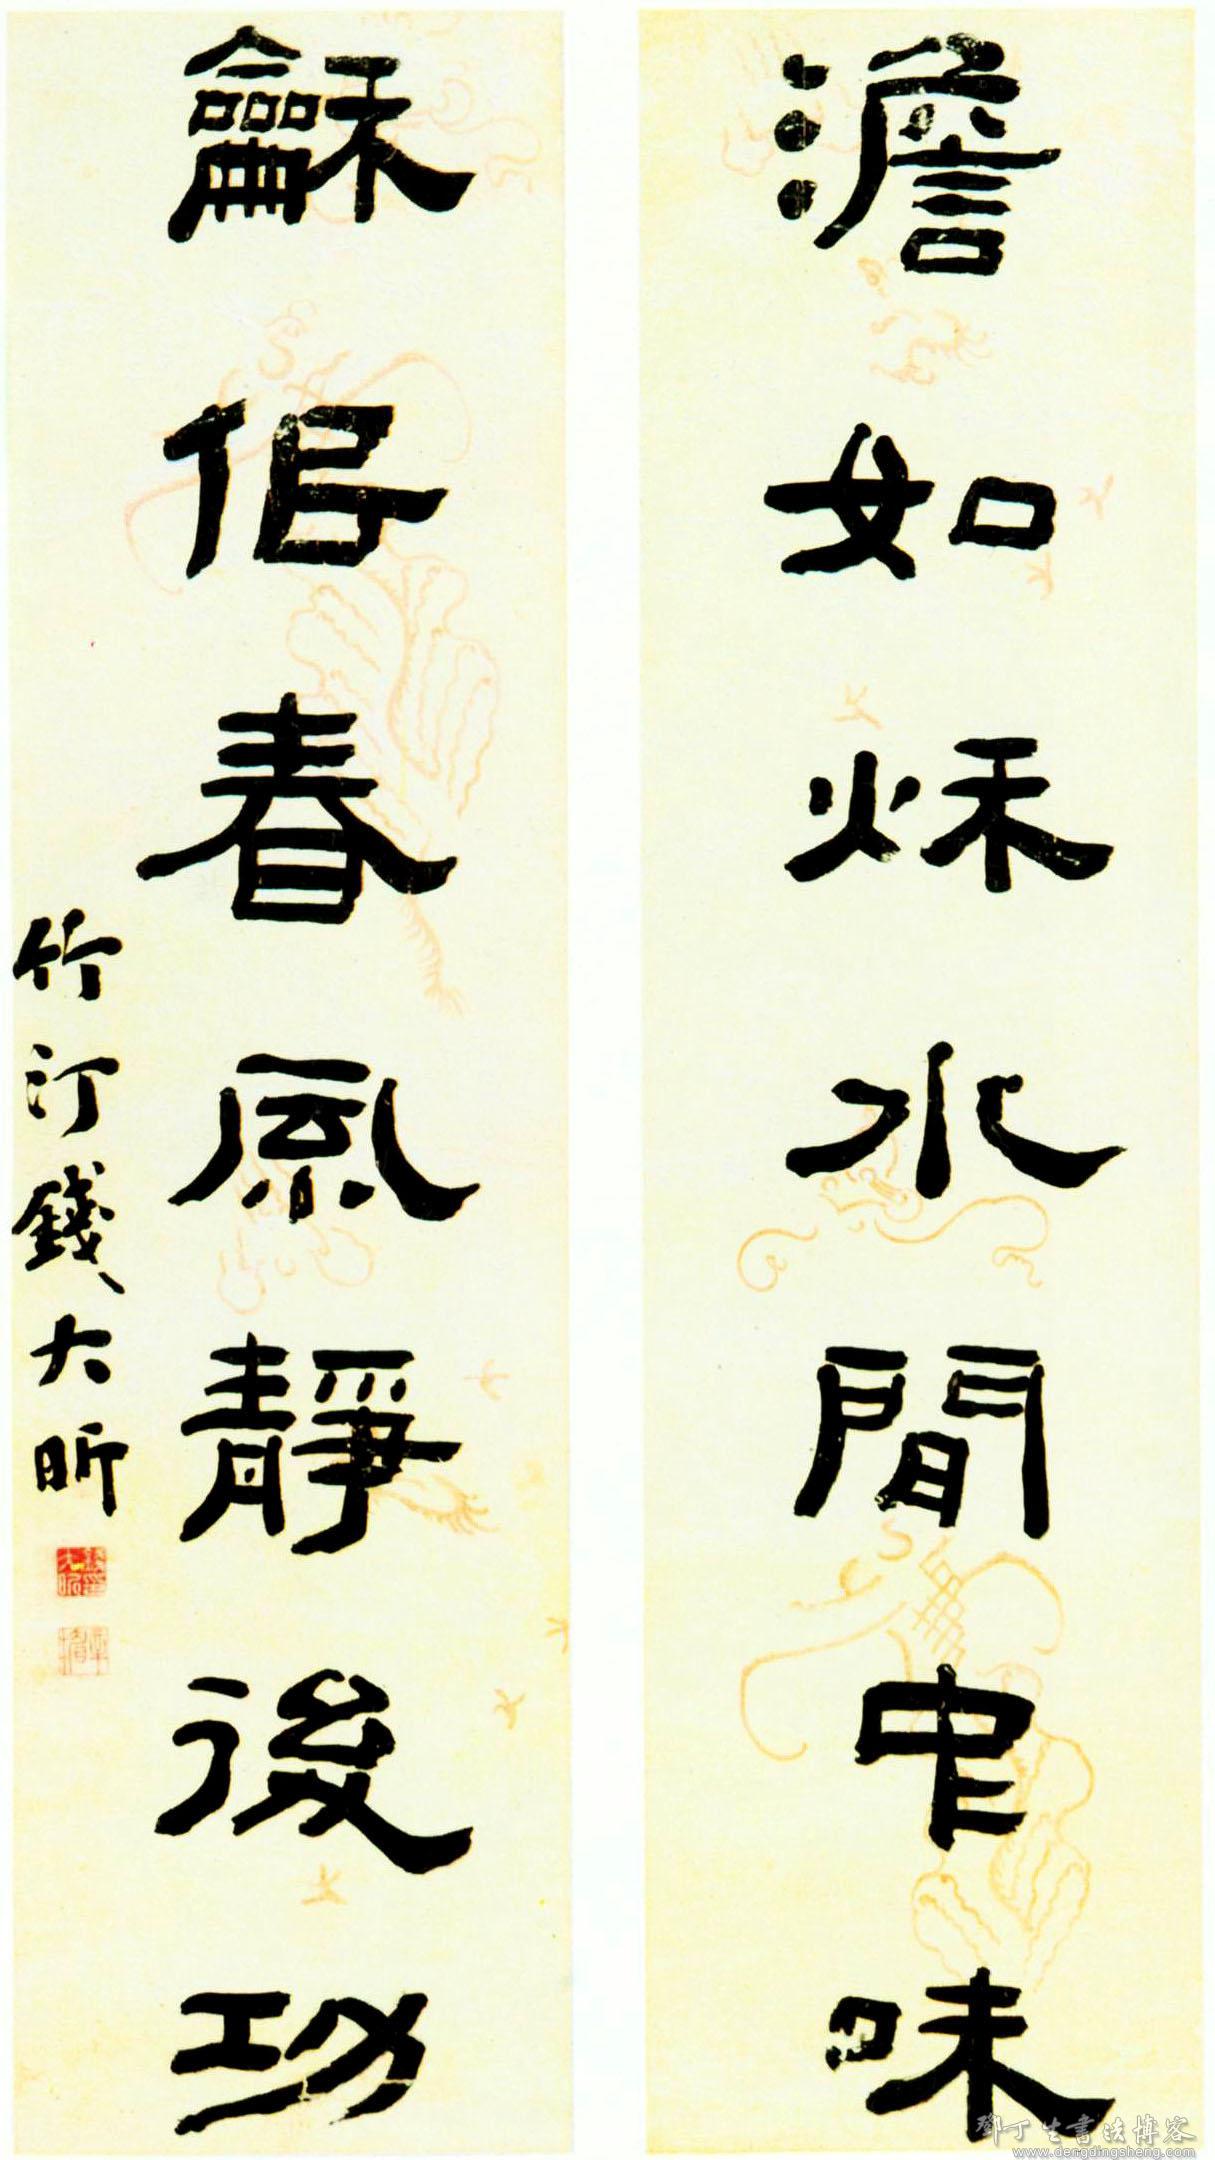 澹如烁水閒中味
龢佀春風靜後功
竹汀錢大昕
鄧丁生書法博客
www.dengdingsheng.com